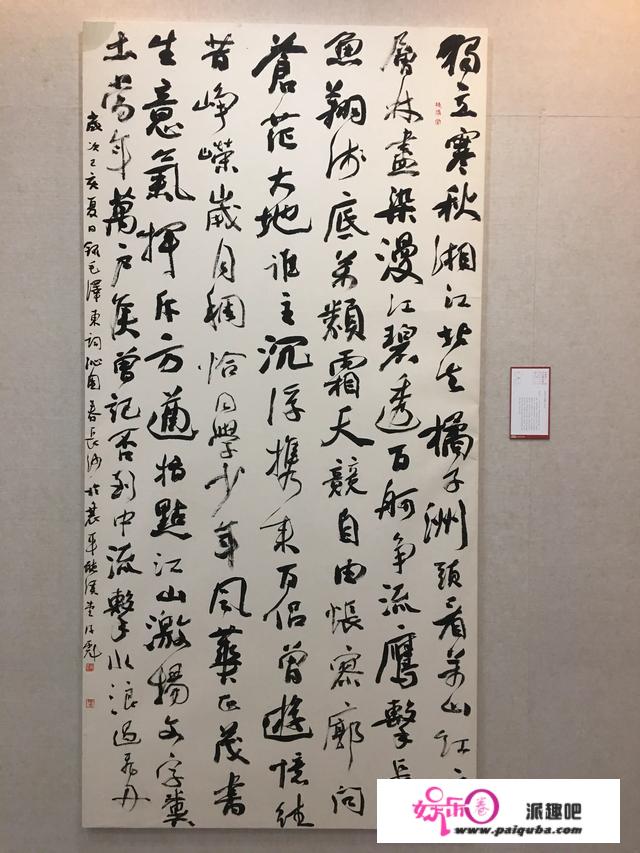 獨立寒秋湘江北去橘子洲頭看萬山紅
層林盡染漫江碧透百舸爭流鷹擊長
魚翔淺底萬類霜天競自由悵寥廓問
蒼茫大地誰主沉浮携來百侶曾遊憶往
昔崢嶸歲月稠恰同學少年風華正茂書
生意氣揮斥方遒指點江山激揚文字糞
土當年萬戶侯曾記否到中流擊水浪遏飛舟
歲次己亥夏日錄毛澤東詞沁園春長沙於
娱乐圈
派趣吧
www.paiquba.com